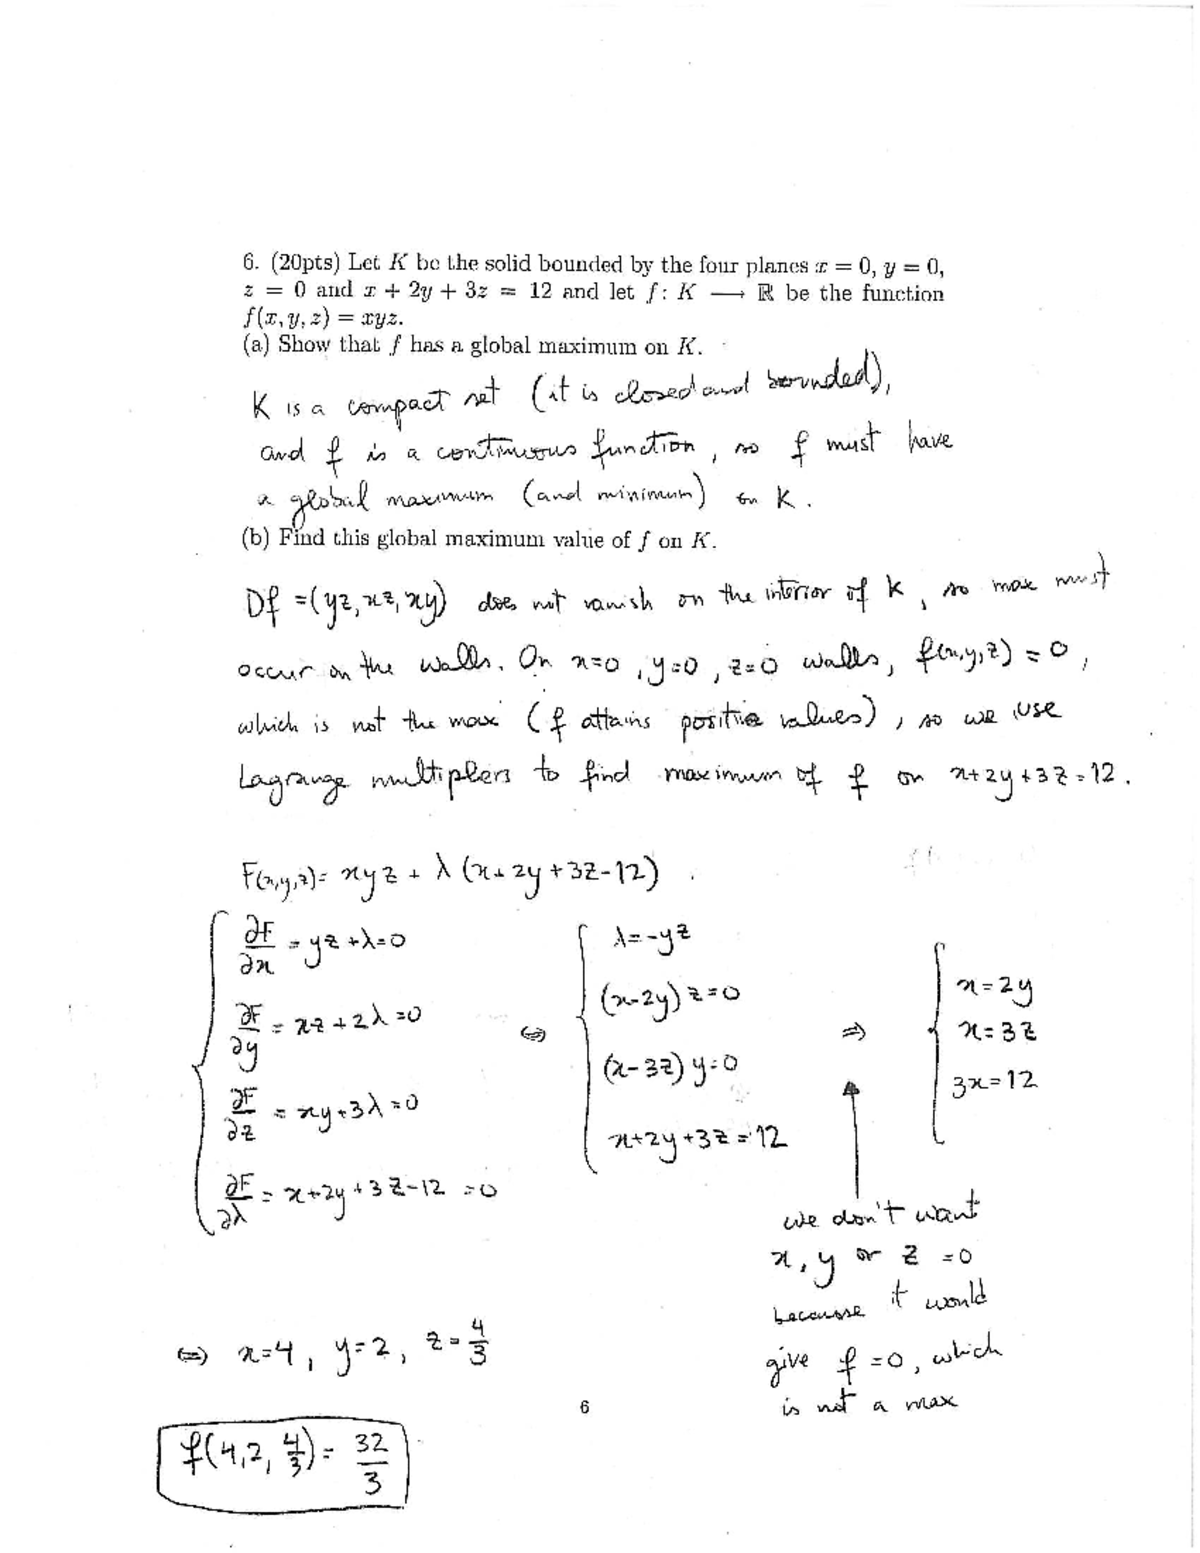 6. (20pts) Let K be the solid bounded by the four planes x = 0, y = 0,
z = 0 and x + 2y + 3z = 12 and let f: K ⟶ ℝ be the function
f(x, y, z) = xyz.
(a) Show that f has a global maximum on K.
K is a compact set (it is closed and bounded),
and f is a continuous function, so f must have
a global maximum (and minimum) on K.
(b) Find this global maximum value of f on K.
Df = (yz, xz, xy) does not vanish on the interior of K, so max must
occur on the walls. On x=0, y=0, z=0 walls, f(x,y,z) = 0,
which is not the max (f attains positive values), so we use
Lagrange multipliers to find maximum of f on x+2y+3z=12.
F(x,y,z)= xyz + λ (x+2y+3z-12)
∂F/∂x = yz+λ=0
∂F/∂y = xz+2λ=0
∂F/∂z = xy+3λ=0
∂F/∂λ = x+2y+3z-12 =0
⇔
λ=-yz
(x-2y)z=0
(x-3z)y=0
x+2y+3z=12
⇒
x=2y
x=3z
3x=12
we don't want
x, y or z =0
because it would
give f=0, which
is not a max
⇔ x=4, y=2, z=4/3
6
f(4,2,4/3)= 32/3